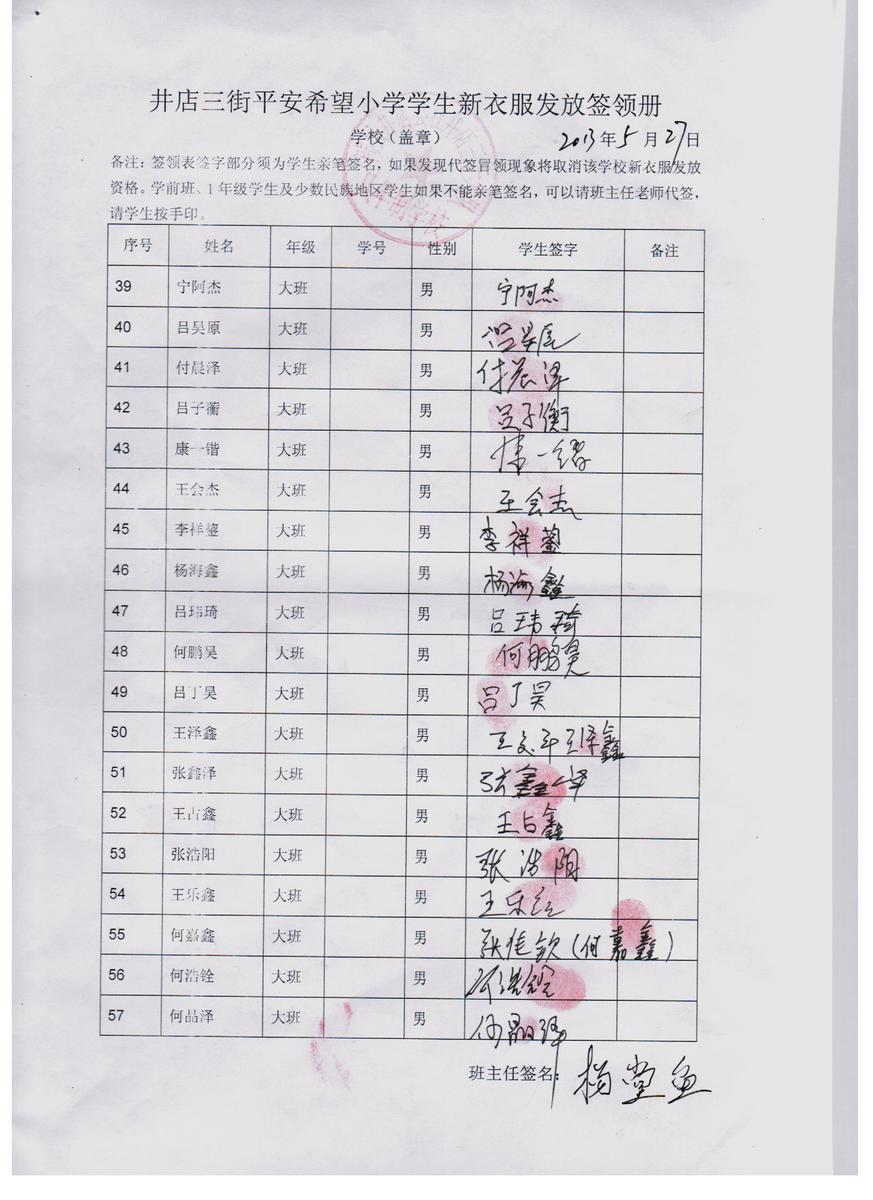 井店三街平安希望小学学生新衣服发放签领册
学校（盖章） 2013年5月27日
备注：签领表签字部分须为学生亲笔签名，如果发现代签冒领现象将取消该学校新衣服发放
资格。学前班、1年级学生及少数民族地区学生如果不能亲笔签名，可以请班主任老师代签，
请学生按手印。
序号 姓名 年级 学号 性别 学生签字 备注
39 宁阿杰 大班 男 宁阿杰
40 吕昊原 大班 男
41 付晨泽 大班 男 付晨泽
42 吕子蘅 大班 男 吕子衡
43 康一锴 大班 男 康一
44 王会杰 大班 男 王会杰
45 李祥鋆 大班 男 李祥
46 杨海鑫 大班 男 杨海鑫
47 吕玮琦 大班 男 吕玮琦
48 何鹏昊 大班 男 何鹏昊
49 吕丁昊 大班 男 吕丁昊
50 王泽鑫 大班 男 王泽鑫
51 张鑫泽 大班 男 张鑫泽
52 王占鑫 大班 男 王占鑫
53 张浩阳 大班 男 张浩阳
54 王乐鑫 大班 男 王乐
55 何嘉鑫 大班 男 张佳钦（何嘉鑫）
56 何浩铨 大班 男 何浩铨
57 何晶泽 大班 男 何晶泽
班主任签名：